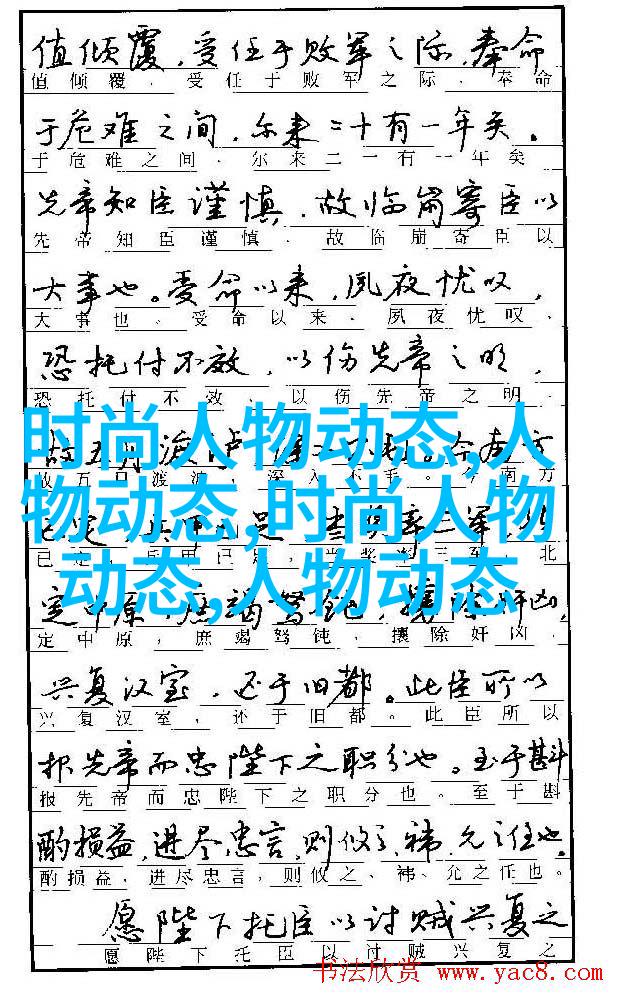 值倾覆，受任于败军之际，奉命
值倾覆．受任于败军之际．奉命
于危难之间，尔来二十有一年矣。
于危难之间．尔来二一有一年矣
先帝知臣谨慎，故临崩寄臣以
先帝知臣谨慎．故临崩寄臣以
大事也。受命以来，夙夜忧叹，
大事也．受命以来．夙夜忧叹．
恐托付不效，以伤先帝之明，
恐托付不效．以伤先帝之明．
时尚人物动态,人
故五月渡 今南方
故五 渡 ，深入不毛。 南方
物动态,时尚人物
已定 三军
已定
动态,人物动态
定中原，庶竭驽钝，攘除奸凶，
定中原，庶竭驽钝，攘除奸凶，
兴复汉室，还于旧都。此臣所以
兴复汉室，还于旧都。此臣所以
报先帝而忠陛下之职分也。至于斟
报先帝而忠陛下之职分也。至于斟
酌损益，进尽忠言，则攸之、祎、允之任也。
酌损益．进尽忠言，则攸之、祎、允之任也。
愿陛下托臣以讨贼兴复之
愿陛下托臣以讨贼兴复之
书法欣赏 www.yac8.com